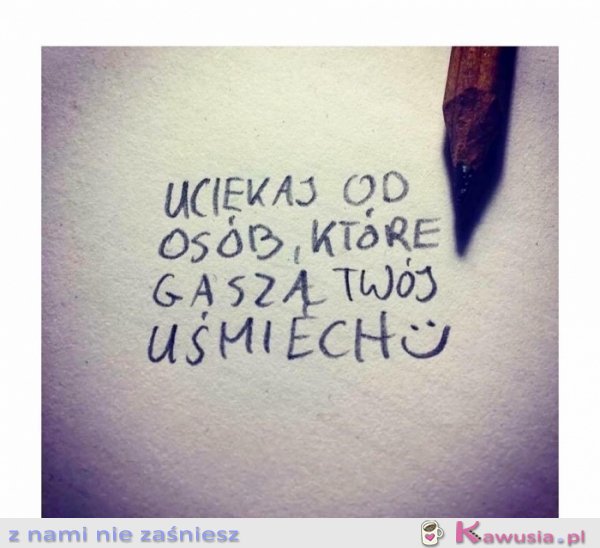 UCIEKAJ OD
OSÓB, KTÓRE
GASZĄ TWÓJ
UŚMIECH :)
z nami nie zaśniesz
Kawusia.pl